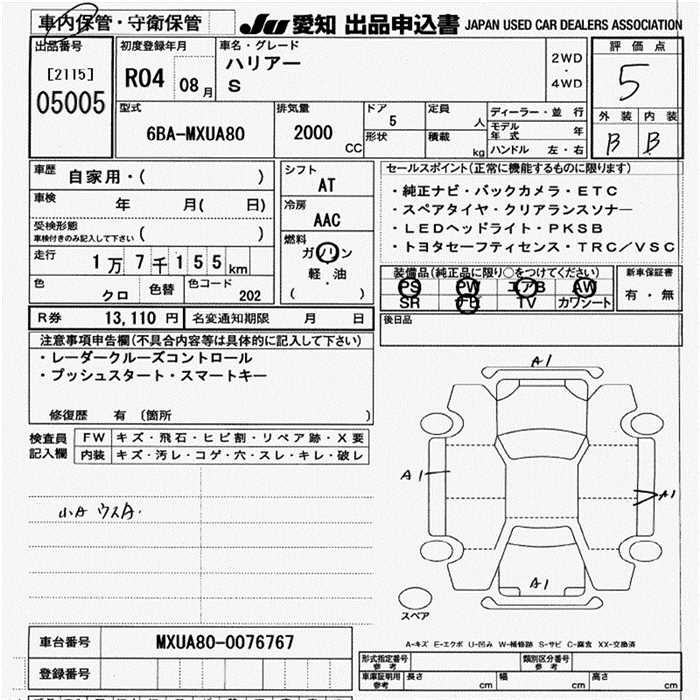 車内保管・守衛保管 JU 愛知 出品申込書 JAPAN USED CAR DEALERS ASSOCIATION
出品番号 初度登録年月 車名・グレード 評価点
[2115] R04 08月 ハリアー 2WD・4WD 5
05005 S
型式 排気量 ドア 定員 ディーラー・並行 外装 内装
6BA-MXUA80 2000 CC 5 人 モデル年式 年 B B
形状 積載 kg ハンドル 左・右
車歴 自家用・( ) シフト セールスポイント(正常に機能するものに限ります)
AT ・純正ナビ・バックカメラ・ETC
車検 年 月( 日) 冷房 ・スペアタイヤ・クリアランスソナー
AAC ・LEDヘッドライト・PKSB
受検形態 ・トヨタセーフティセンス・TRC/VSC
車検付きのみ記入して下さい ( ) 燃料
走行 1万7千155km ガソリン・軽油
( )
装備品(純正品に限り○をつけてください) 新車保証書
色 色替 色コード PS PW エアB AW 有・無
クロ 202 SR TV カワシート
R券 13,110円 名変通知期限 月 日 後日品
注意事項申告欄(不具合内容等は具体的に記入して下さい)
・レーダークルーズコントロール A1
・プッシュスタート・スマートキー
修復歴 有(箇所 )
検査員 FW キズ・飛石・ヒビ割・リペア跡・X要
記入欄 内装 キズ・汚レ・コゲ・穴・スレ・キレ・破レ
A1 A1
小A ウスA.
A1
スペア
A-キズ E-エクボ U-凹み W-補修跡 S-サビ C-腐食 XX-交換済
車台番号 MXUA80-0076767
登録番号 形式指定番号 参考 類別区分番号 参考
車庫証明用 参考 長さ cm 幅 cm 高さ cm